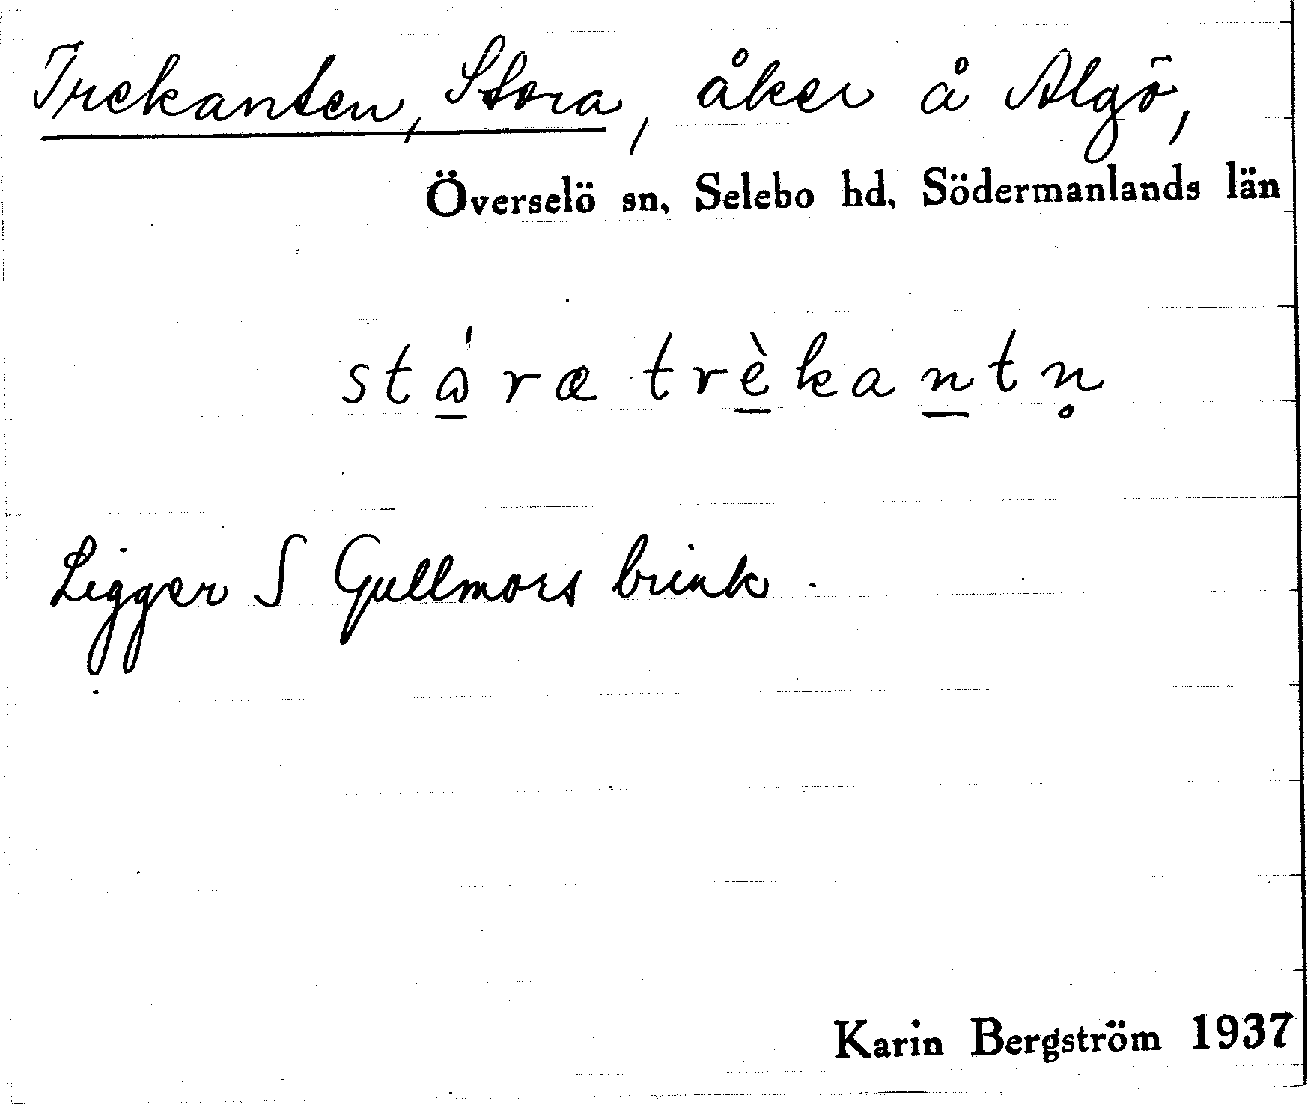 Trekanten, Stora, åker å Algö,
Överselö sn, Selebo hd, Södermanlands län
stɷ́ræ trèkantn̥
Ligger S Gullmors brink.
Karin Bergström 1937